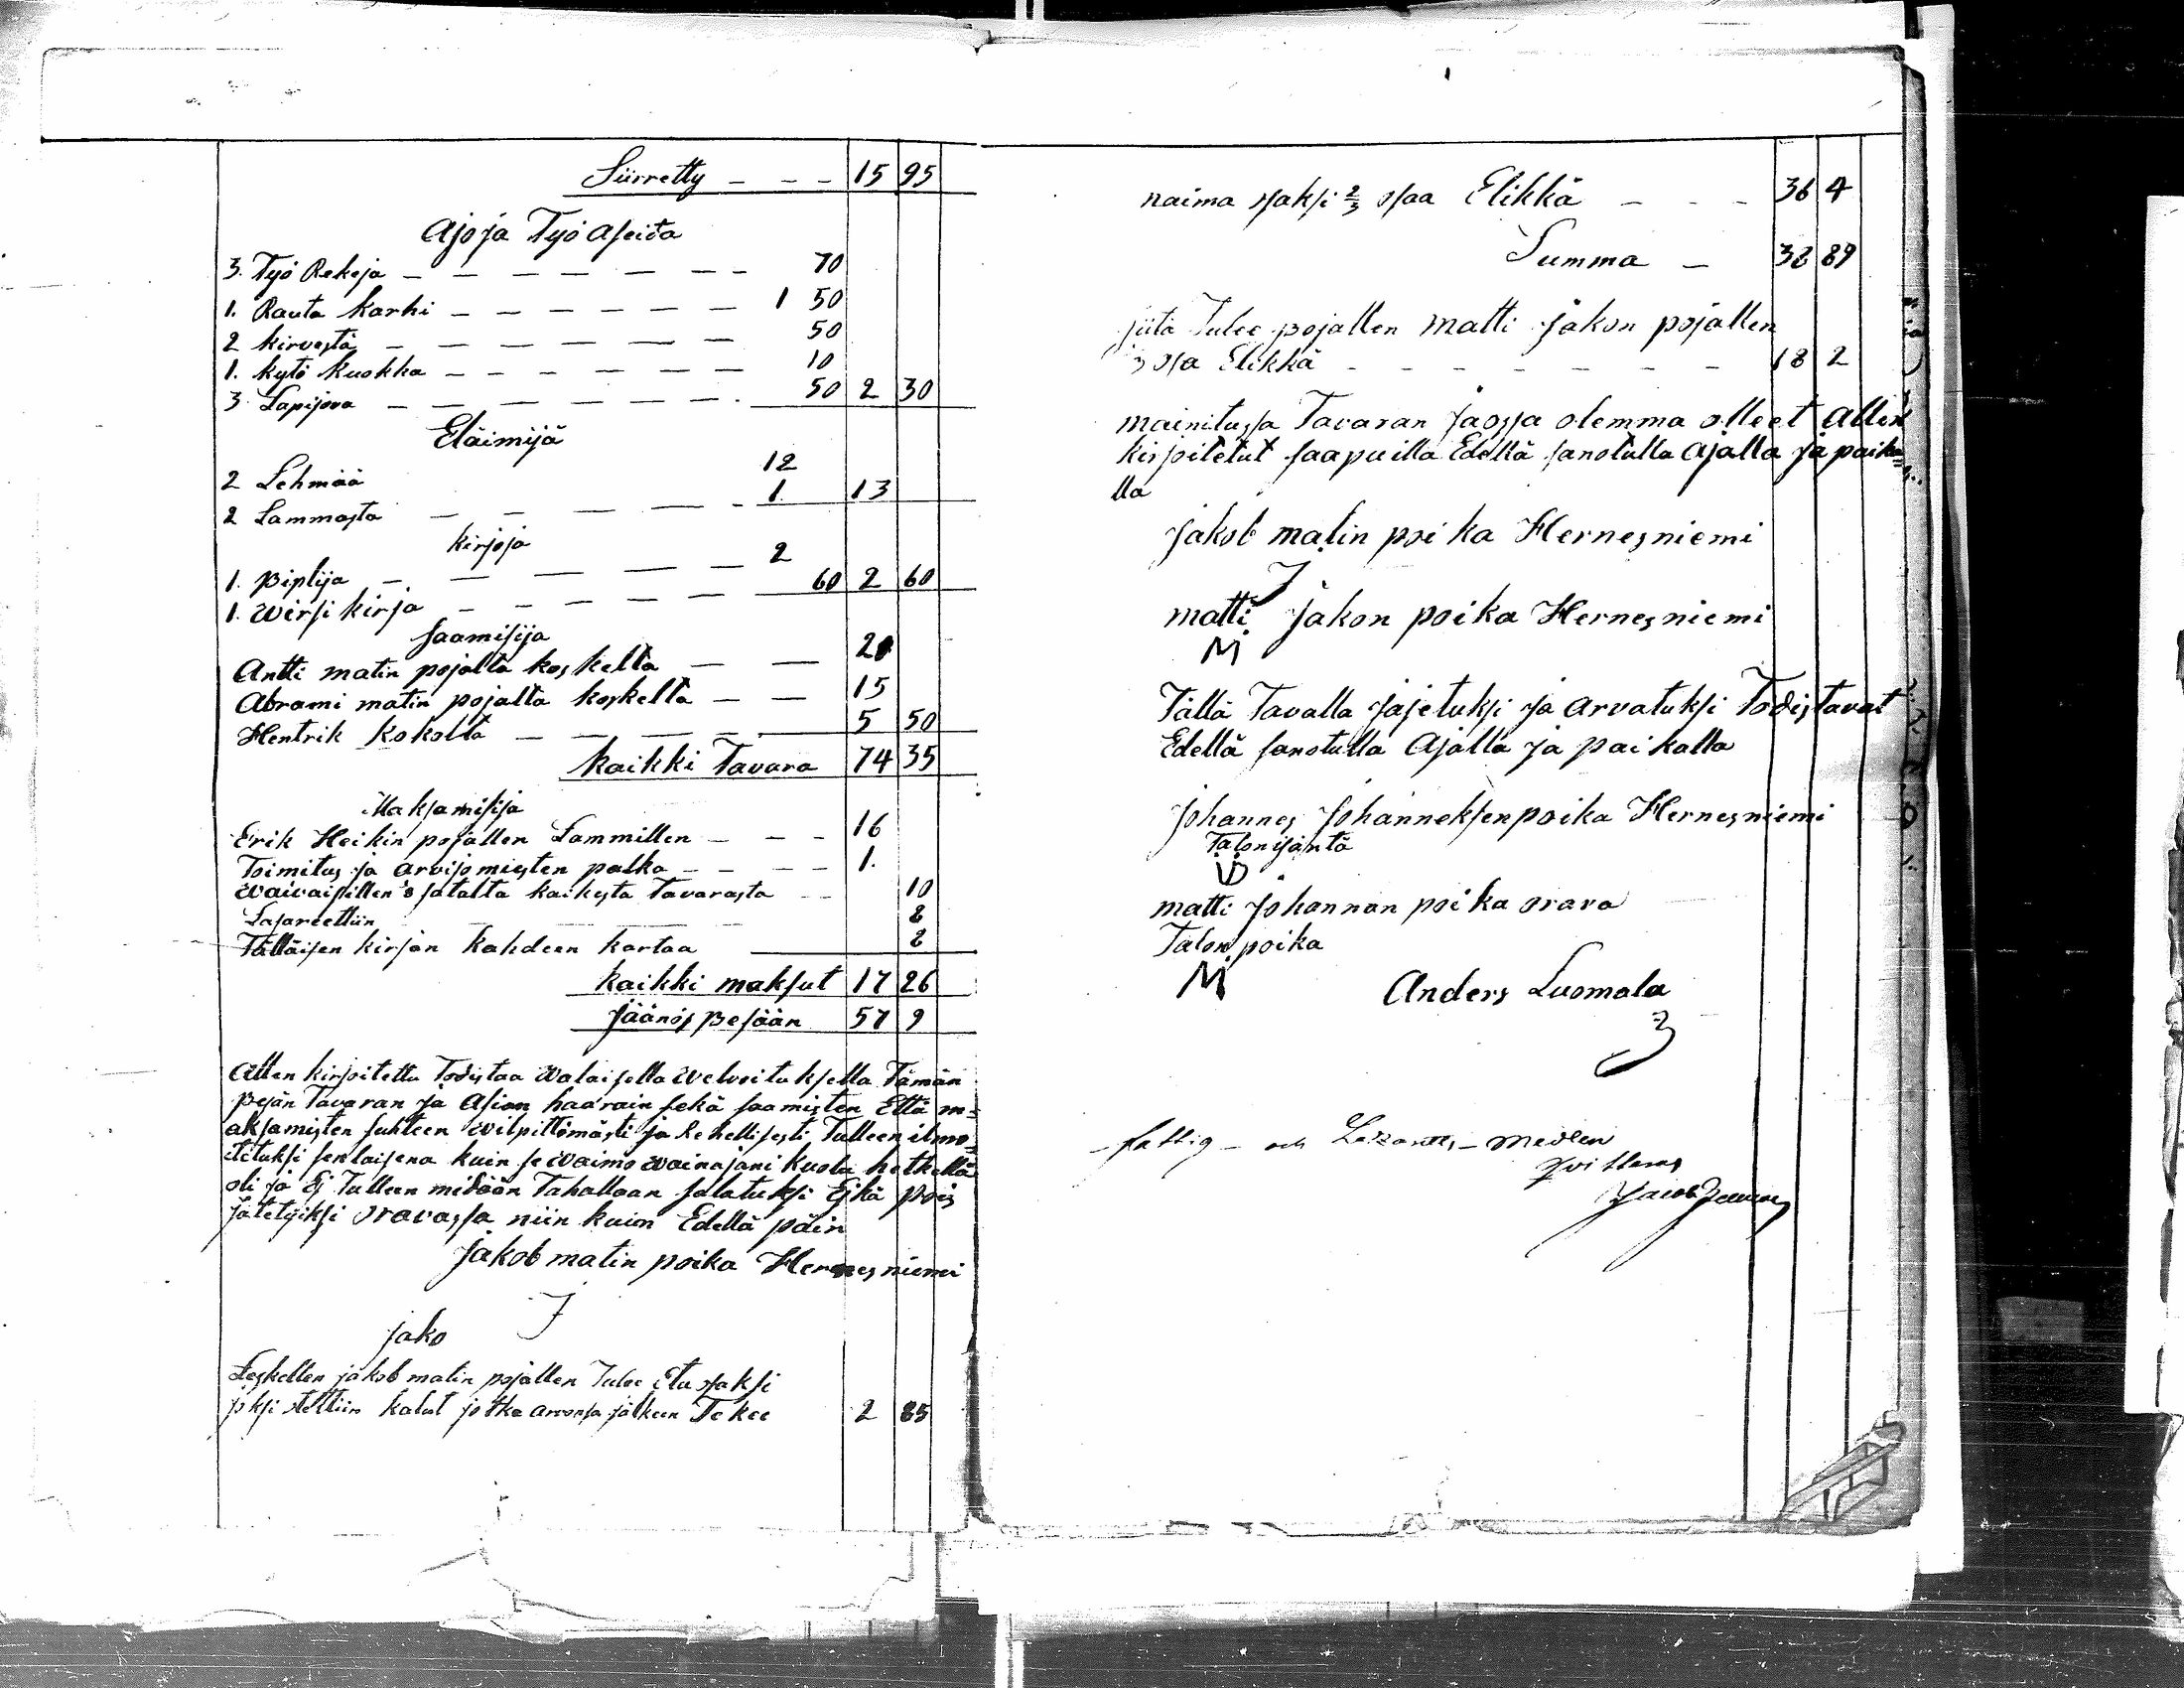 Siirretty - - - 15 95
Ajo ja Työ Aseita
3. Työ Rekeja - - - - - - - 70
1. Rauta Karhi - - - - - - 1 50
2 kirvestä - - - - - - 50
1. kytö kuokka - - - - - - 10
3 Lapijova - - - - - - 50 2 30
Eläimijä
2 Lehmää 12
2 Lammasta - - - - - 1. 13
kirjoja
1. Biplija - - - - - 2
1. Wirsi kirja - - - - - 60 2 60
saamisija
Antti matin pojalta koskelta - - 20
Abrami matin pojalta koskelta - - 15
Hentrik kokolta - - - - - 5 50
kaikki Tavara 74 35
Maksamisija
Erik Heikin pojallen Lammillen - - - 16
Toimitus ja arvijomiesten palka - - - - 1.
waivaisillen satalta kaikesta Tavarasta - - 10
Lasareettiin 8
Tälläisen kirjan kahdeen kertaa 8
kaikki maksut 17 26
Jäänös Pesään 57 9
Allen kirjoitettu Todistaa Walaisella Welvoituksella Tämän
Pesän Tavaran ja Asian haarain sekä saamisten Että m=
aksamisten suhteen Wilpittömästi ja Rehellisesti Tulleen ilmo=
itetuksi senlaisena kuin se Waimo Wainajani kuolu hetkellä
oli ja Ej Tulleen mitään Tahallaan salatuksi Ejkä pois
jätetyiksi Oravassa niin kuin Edellä päin
Jakob matin poika Hernesniemi
J
jako
Leskellen jakob matin pojallen Tulee Etu osaksi
joksi otettiin kalut jotka arvonsa jälkeen Tekee 2 85
naima osaksi 2/3 osaa Elikkä - - - 36 4
Summa - 38 89
siitä Tulee pojallen matti jakon pojallen
3 osa Elikkä - - - - - - - 18 2
mainitussa Tavaran jaossa olemma olleet allen
kirjoitetut saapuilla Edellä sanotulla ajalla ja paika=
lla
Jakob matin poika Hernesniemi
J
matti Jakon poika Hernesniemi
M
Tällä Tavalla jajetuksi ja arvatuksi Todistavat
Edellä sanotulla Ajalla ja paikalla
Johannes Johanneksen poika Hernesniemi
Talonijäntä
matti Johannan poika orava
Talon poika
M
Anders Luomala
fattig - och Lazaretts - medlen
qvitteras
Jacob